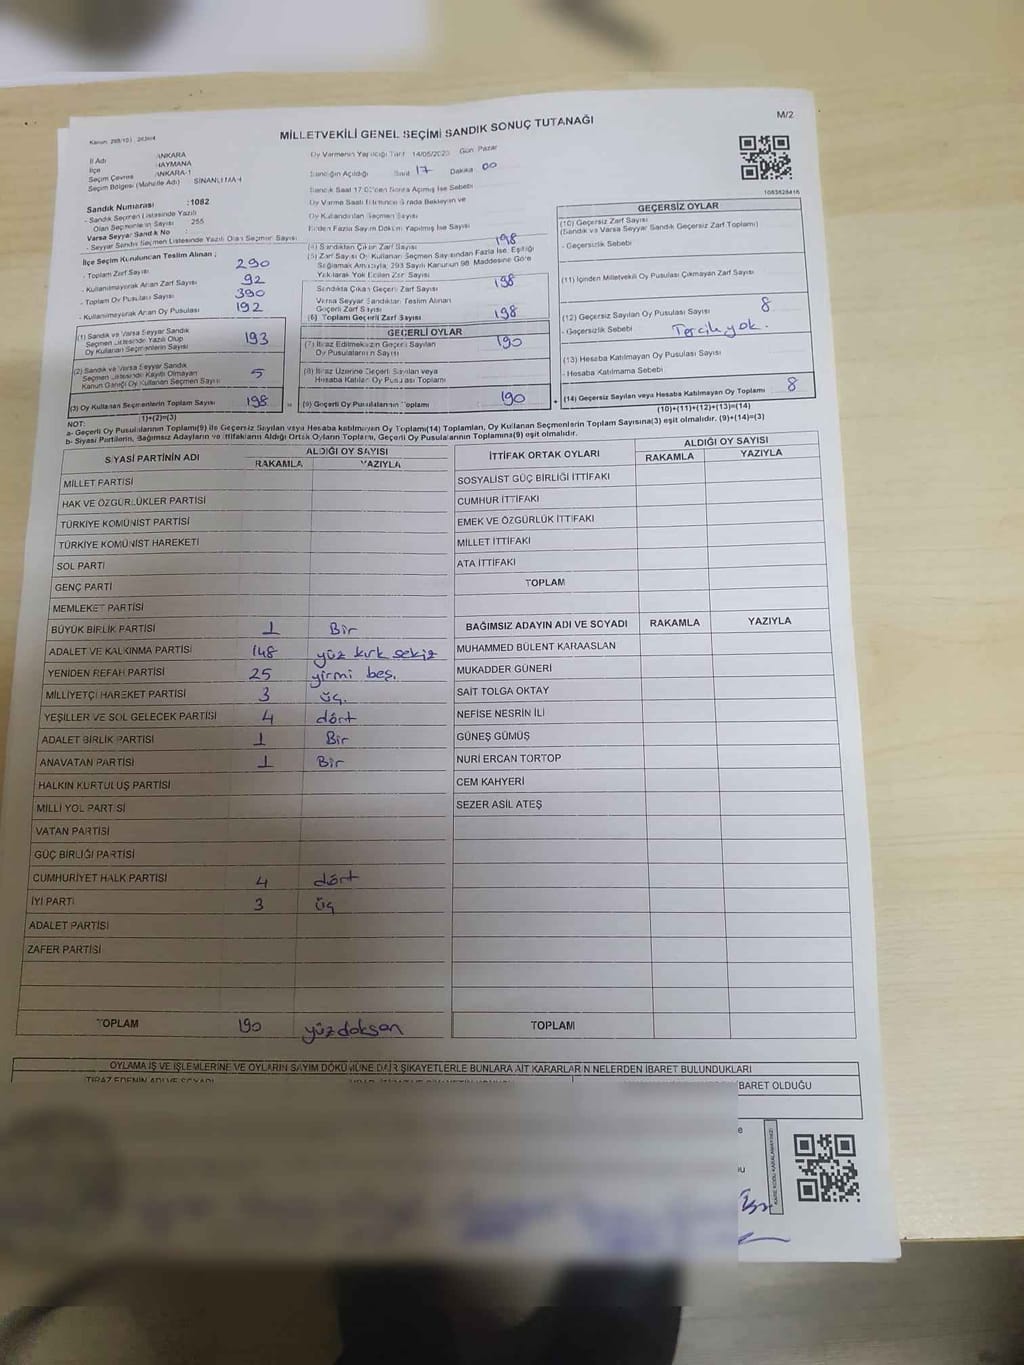 M/2
MİLLETVEKİLİ GENEL SEÇİMİ SANDIK SONUÇ TUTANAĞI
İl Adı ANKARA
İlçe HAYMANA
Seçim Çevres ANKARA-1
Seçim Bölgesi (Mahalle Adı)
Oy Vermenin Yapıldığı Tarih 14/05/2023 Gün Pazar
Sandığın Açıldığı Saat 17 Dakika 00
Sandık Saat 17:00'den Sonra Açılmış İse Sebebi
Oy Kullandırılan Seçmen Sayısı
Birden Fazla Sayım Döküm Yapılmış İse Sayısı
1083828416
Sandık Numarası :1082
- Sandık Seçmen Listesinde Yazılı
Olan Seçmenlerin Sayısı 255
Varsa Seyyar Sandık No
- Seyyar Sandık Seçmen Listesinde Yazılı Olan Seçmen Sayısı
İlçe Seçim Kurulundan Teslim Alınan ;
- Toplam Zarf Sayısı 290
- Kullanılmayarak Artan Zarf Sayısı 92
- Toplam Oy Pusulası Sayısı 390
- Kullanılmayarak Artan Oy Pusulası 192
(1) Sandık ve Varsa Seyyar Sandık
Seçmen Listesinde Yazılı Olup
Oy Kullanan Seçmenlerin Sayısı 193
(2) Sandık ve Varsa Seyyar Sandık
Seçmen Listesinde Kayıtlı Olmayan
Kanun Gereği Oy Kullanan Seçmen Sayısı 5
(3) Oy Kullanan Seçmenlerin Toplam Sayısı 198
1)+(2)=(3)
(4) Sandıktan Çıkan Zarf Sayısı 198
(5) Zarf Sayısı Oy Kullanan Seçmen Sayısından Fazla İse, Eşitliği
Sağlamak Amacıyla, 293 Sayılı Kanunun 98. Maddesine Göre
Yakılarak Yok Edilen Zarf Sayısı
Sandıkta Çıkan Geçerli Zarf Sayısı 198
Varsa Seyyar Sandıktan Teslim Alınan
Geçerli Zarf Sayısı
(6) Toplam Geçerli Zarf Sayısı 198
GEÇERLİ OYLAR
(7) İtiraz Edilmeksizin Geçerli Sayılan
Oy Pusulalarının Sayısı 190
(8) İtiraz Üzerine Geçerli Sayılan veya
Hesaba Katılan Oy Pusulası Toplamı
(9) Geçerli Oy Pusulalarının Toplamı 190
GEÇERSİZ OYLAR
(10) Geçersiz Zarf Sayısı
(Sandık ve Varsa Seyyar Sandık Geçersiz Zarf Toplamı)
- Geçersizlik Sebebi
(11) İçinden Milletvekili Oy Pusulası Çıkmayan Zarf Sayısı
(12) Geçersiz Sayılan Oy Pusulası Sayısı 8
- Geçersizlik Sebebi Tercih yok.
(13) Hesaba Katılmayan Oy Pusulası Sayısı
- Hesaba Katılmama Sebebi
(14) Geçersiz Sayılan veya Hesaba Katılmayan Oy Toplamı 8
(10)+(11)+(12)+(13)=(14)
NOT:
a- Geçerli Oy Pusulalarının Toplamı(9) ile Geçersiz Sayılan veya Hesaba katılmayan Oy Toplamı(14) Toplamları, Oy Kullanan Seçmenlerin Toplam Sayısına(3) eşit olmalıdır. (9)+(14)=(3)
b- Siyasi Partilerin, Bağımsız Adayların ve İttifakların Aldığı Ortak Oyların Toplamı, Geçerli Oy Pusulalarının Toplamına(9) eşit olmalıdır.
SİYASİ PARTİNİN ADI ALDIĞI OY SAYISI
RAKAMLA YAZIYLA
MİLLET PARTİSİ
HAK VE ÖZGÜRLÜKLER PARTİSİ
TÜRKİYE KOMÜNİST PARTİSİ
TÜRKİYE KOMÜNİST HAREKETİ
SOL PARTİ
GENÇ PARTİ
MEMLEKET PARTİSİ
BÜYÜK BİRLİK PARTİSİ 1 Bir
ADALET VE KALKINMA PARTİSİ 148 yüz kırk sekiz
YENİDEN REFAH PARTİSİ 25 yirmi beş.
MİLLİYETÇİ HAREKET PARTİSİ 3 üç.
YEŞİLLER VE SOL GELECEK PARTİSİ 4 dört
ADALET BİRLİK PARTİSİ 1 Bir
ANAVATAN PARTİSİ 1 Bir
HALKIN KURTULUŞ PARTİSİ
MİLLİ YOL PARTİSİ
VATAN PARTİSİ
GÜÇ BİRLİĞİ PARTİSİ
CUMHURİYET HALK PARTİSİ 4 dört
İYİ PARTİ 3 üç
ADALET PARTİSİ
ZAFER PARTİSİ
TOPLAM 190 yüz doksan
İTTİFAK ORTAK OYLARI ALDIĞI OY SAYISI
RAKAMLA YAZIYLA
SOSYALİST GÜÇ BİRLİĞİ İTTİFAKI
CUMHUR İTTİFAKI
EMEK VE ÖZGÜRLÜK İTTİFAKI
MİLLET İTTİFAKI
ATA İTTİFAKI
TOPLAM
BAĞIMSIZ ADAYIN ADI VE SOYADI RAKAMLA YAZIYLA
MUHAMMED BÜLENT KARAASLAN
MUKADDER GÜNERİ
SAİT TOLGA OKTAY
NEFİSE NESRİN İLİ
GÜNEŞ GÜMÜŞ
NURİ ERCAN TORTOP
CEM KAHYERİ
SEZER ASİL ATEŞ
TOPLAM
OYLAMA İŞ VE İŞLEMLERİNE VE OYLARIN SAYIM DÖKÜMÜNE DAİR ŞİKAYETLERLE BUNLARA AİT KARARLARIN NELERDEN İBARET BULUNDUKLARI
İTİRAZ EDENİN ADI VE SOYADI
BARET OLDUĞU